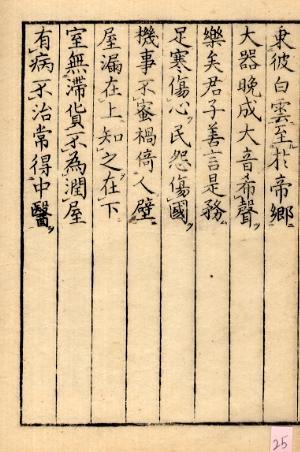 乗彼白雲至於帝鄉
大器晚成大音希聲
樂矣君子善言是務
足寒傷心民怨傷國
機事不蜜禍倚人壁
屋漏在上知之在下
室無滞货不為潤屋
有病不治常得中醫
25